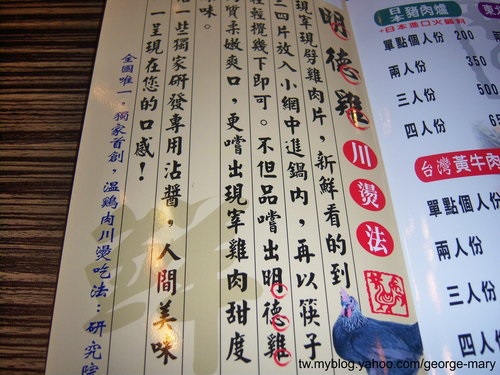 明德雞川燙法
現宰現劈雞肉片，新鮮看的到
三四片放入小網中進鍋內，再以筷子
輕輕攪幾下即可。不但品嚐出明德雞
質柔嫩爽口，更嚐出現宰雞肉甜度
味。
一些獨家研發專用沾醬，人間美味
一呈現在您的口感！
全國唯一，獨家首創，溫鷄肉川燙吃法：研究院
日本豬肉爐
+日本進口火鍋料
單點個人份 200
兩人份 350
三人份 500
四人份 65
台灣黃牛肉
單點個人份
兩人份
三人份
四人份
tw.myblog.yahoo.com/george-mary